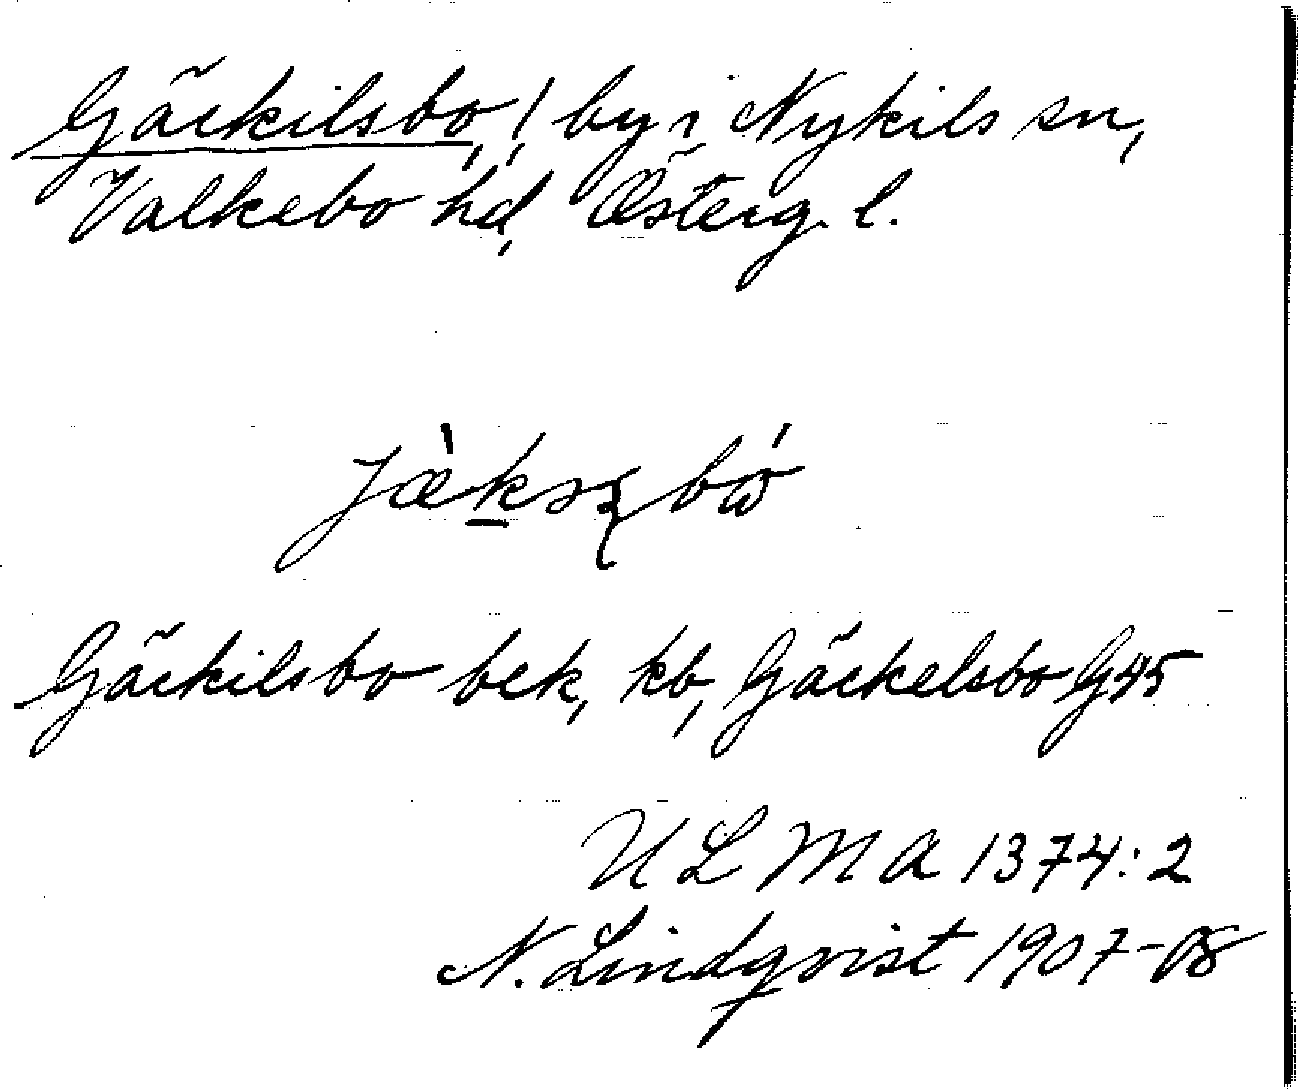 Gäckilsbo, ! by i Nykils sn,
Valkebo hd, Österg. l.
Gäckilsbo bek, kb, Gäckelsbo G45
ULMA 1374:2
N. Lindqvist 1907-08